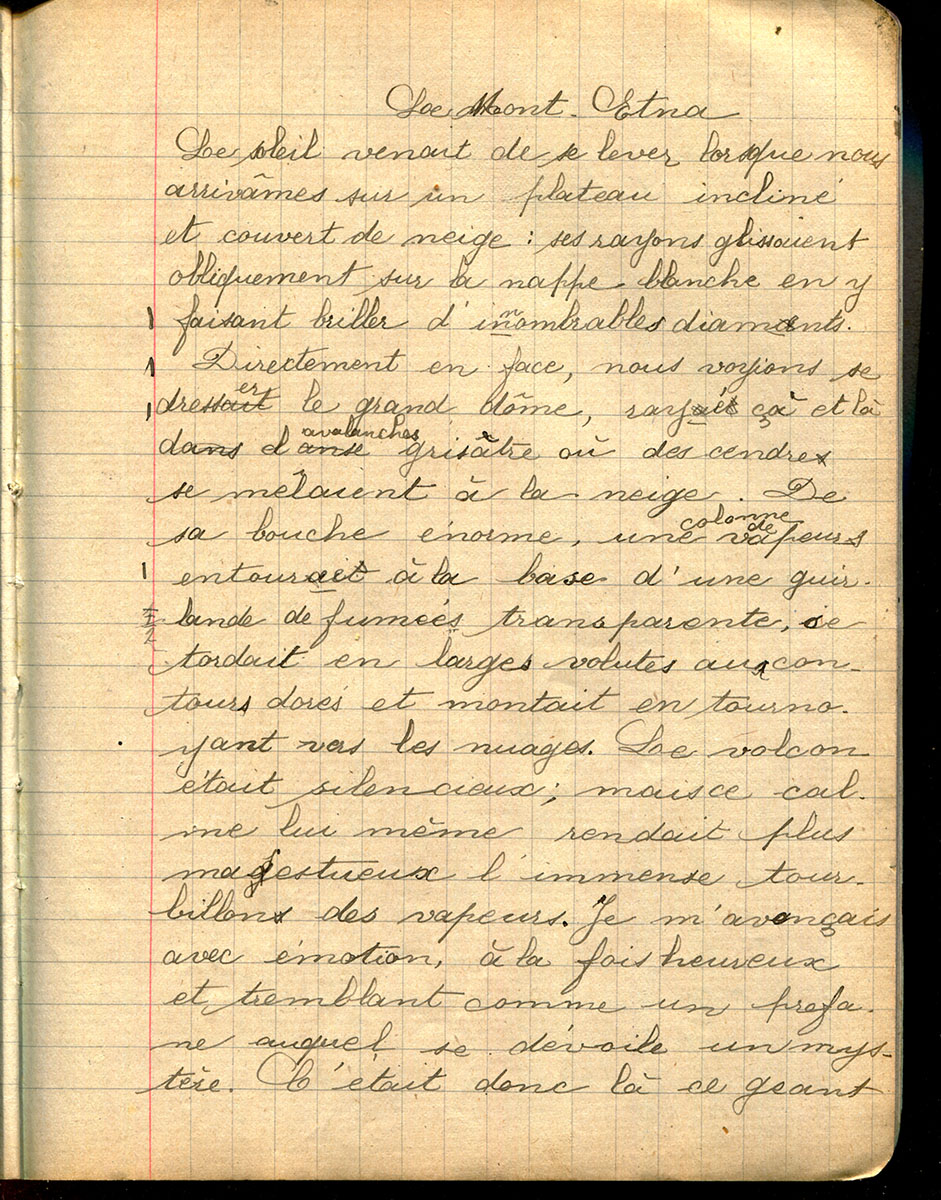 Le Mont-Etna
Le soleil venait de se lever lorsque nous
arrivâmes sur un plateau incliné
et couvert de neige : ses rayons glissaient
obliquement sur la nappe blanche en y
faisant briller d'innombrables diamants.
Directement en face, nous voyions se
dresser le grand dôme, rayait ça et là
d'avalanches grisâtre où des cendres
se mêlaient à la neige. De
sa bouche énorme, une colonne de vapeurs
entourait à la base d'une guir-
lande de fumées transparente, se
tordait en larges volutes aux con-
tours dorés et montait en tourno-
yant vers les nuages. Le volcan
était silencieux; mais ce cal-
me lui même rendait plus
majestueux l'immense tour-
billons des vapeurs. Je m'avançais
avec émotion, à la fois heureux
et tremblant comme un profa-
ne auquel se dévoile un mys-
tère. C'était donc là ce geant